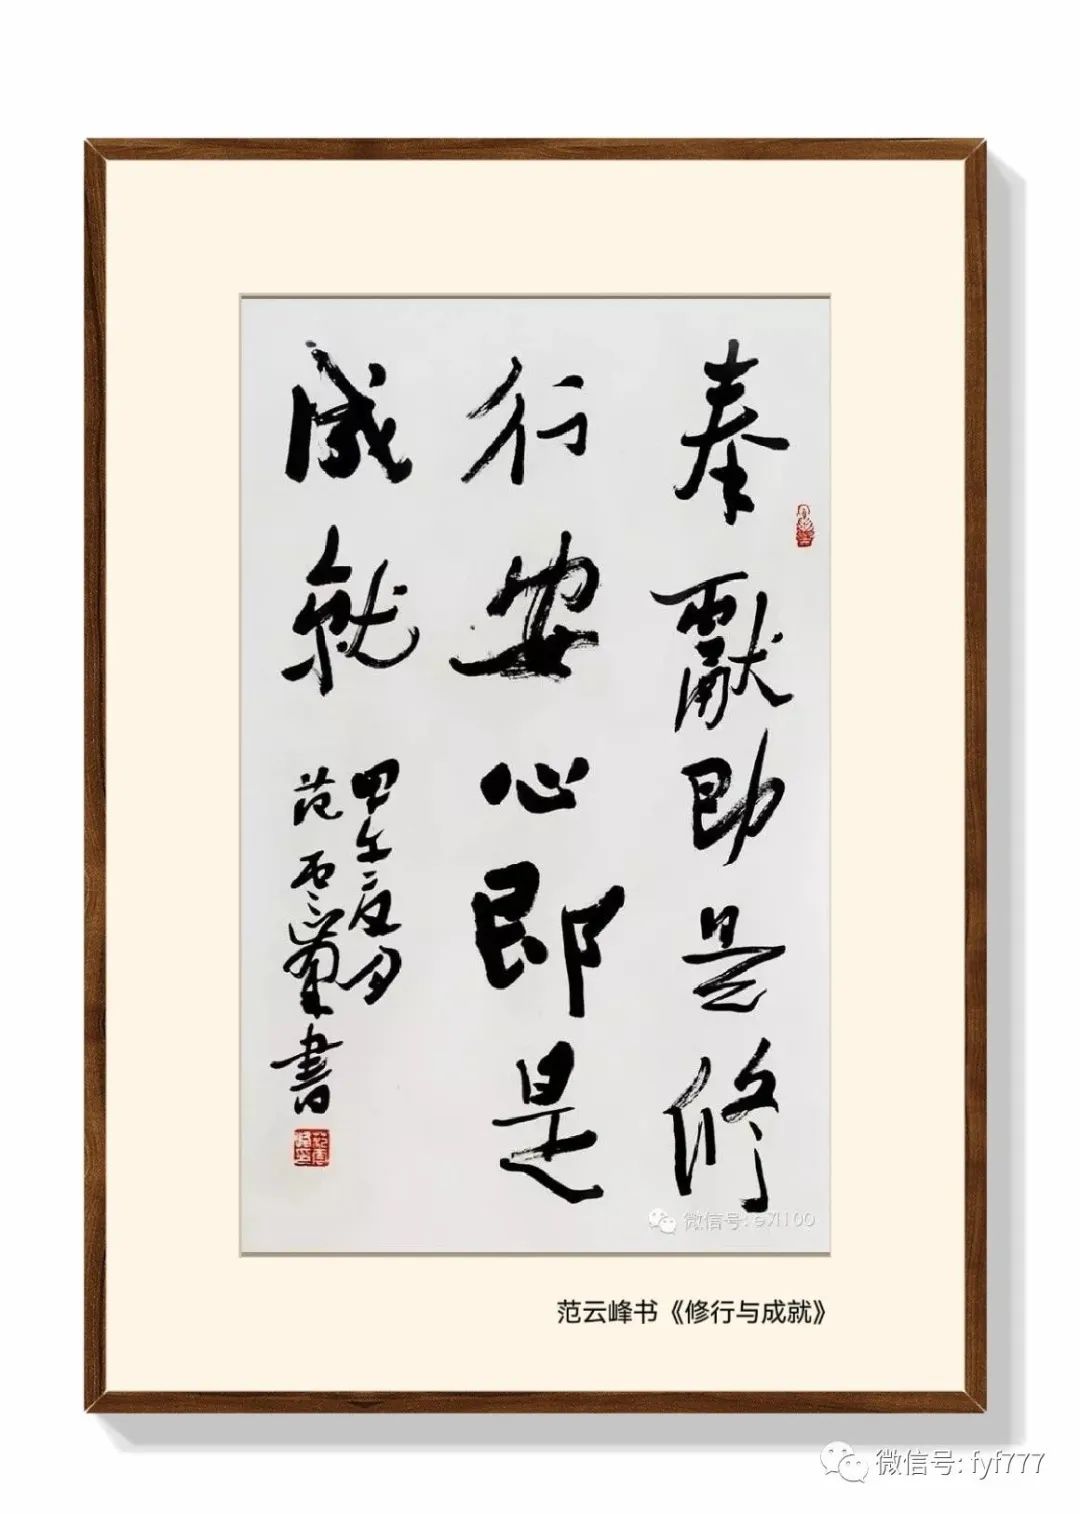 奉獻即是修
行安心即是
成就
甲午夏月
范雲峯書
微信号:
范云峰书《修行与成就》
微信号: fyf777